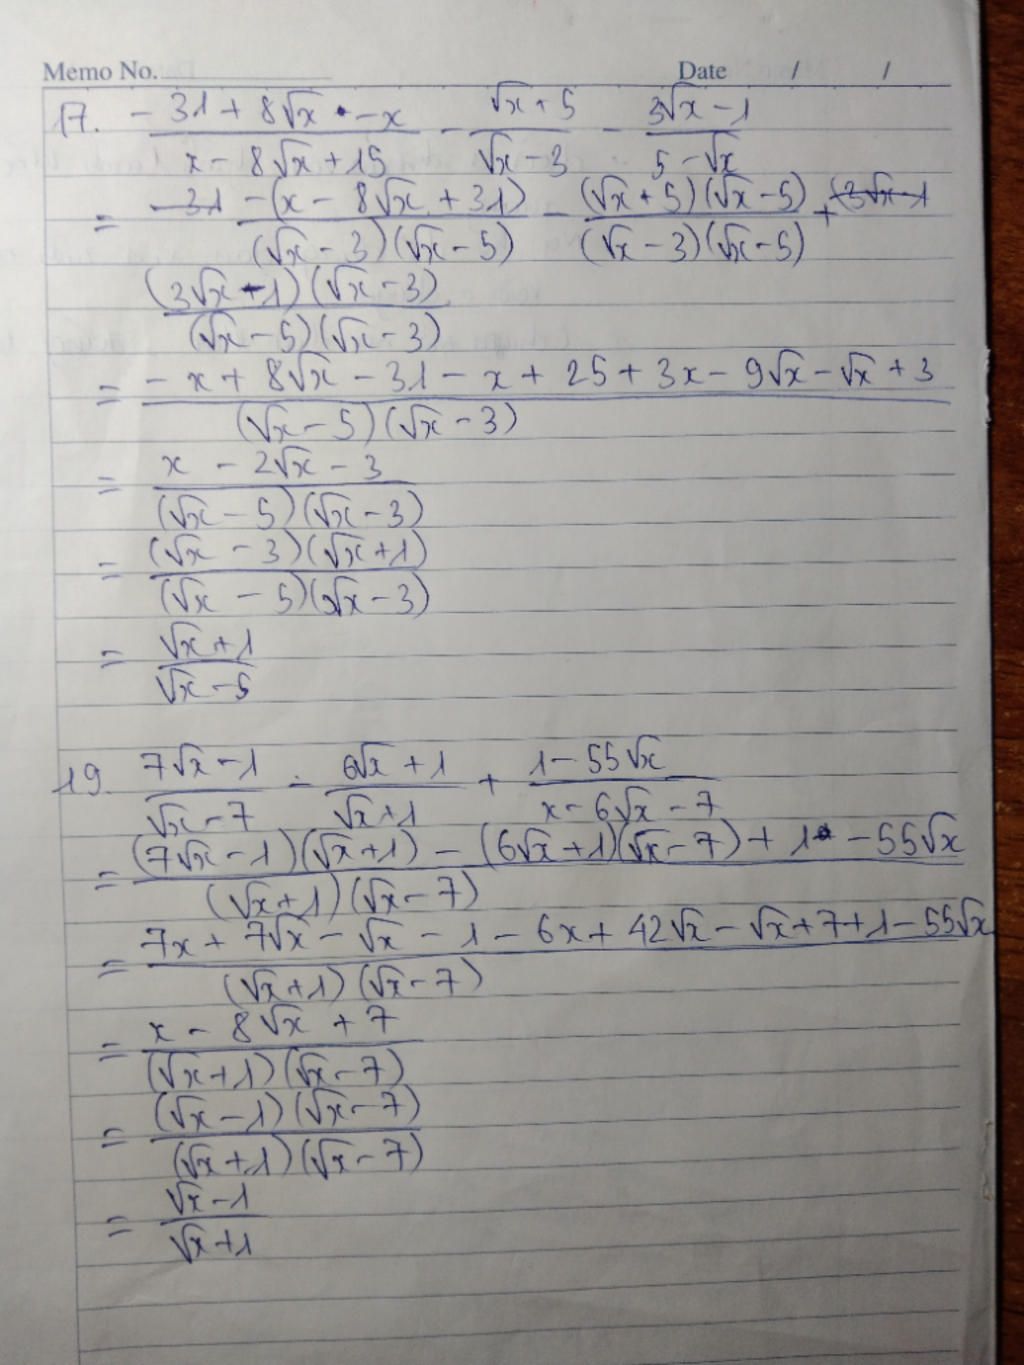 Memo No. Date / /
17. (-31 + 8√x - x)/(x - 8√x + 15) - (√x + 5)/(√x - 3) - (3√x - 1)/(5 - √x)
= -(x - 8√x + 31)/((√x - 3)(√x - 5)) - ((√x + 5)(√x - 5))/((√x - 3)(√x - 5)) +
((3√x - 1)(√x - 3))/((√x - 5)(√x - 3))
= (-x + 8√x - 31 - x + 25 + 3x - 9√x - √x + 3)/((√x - 5)(√x - 3))
= (x - 2√x - 3)/((√x - 5)(√x - 3))
= ((√x - 3)(√x + 1))/((√x - 5)(√x - 3))
= (√x + 1)/(√x - 5)
19. (7√x - 1)/(√x - 7) - (6√x + 1)/(√x + 1) + (1 - 55√x)/(x - 6√x - 7)
= ((7√x - 1)(√x + 1) - (6√x + 1)(√x - 7) + 1 - 55√x)/((√x + 1)(√x - 7))
= (7x + 7√x - √x - 1 - 6x + 42√x - √x + 7 + 1 - 55√x)/((√x + 1)(√x - 7))
= (x - 8√x + 7)/((√x + 1)(√x - 7))
= ((√x - 1)(√x - 7))/((√x + 1)(√x - 7))
= (√x - 1)/(√x + 1)